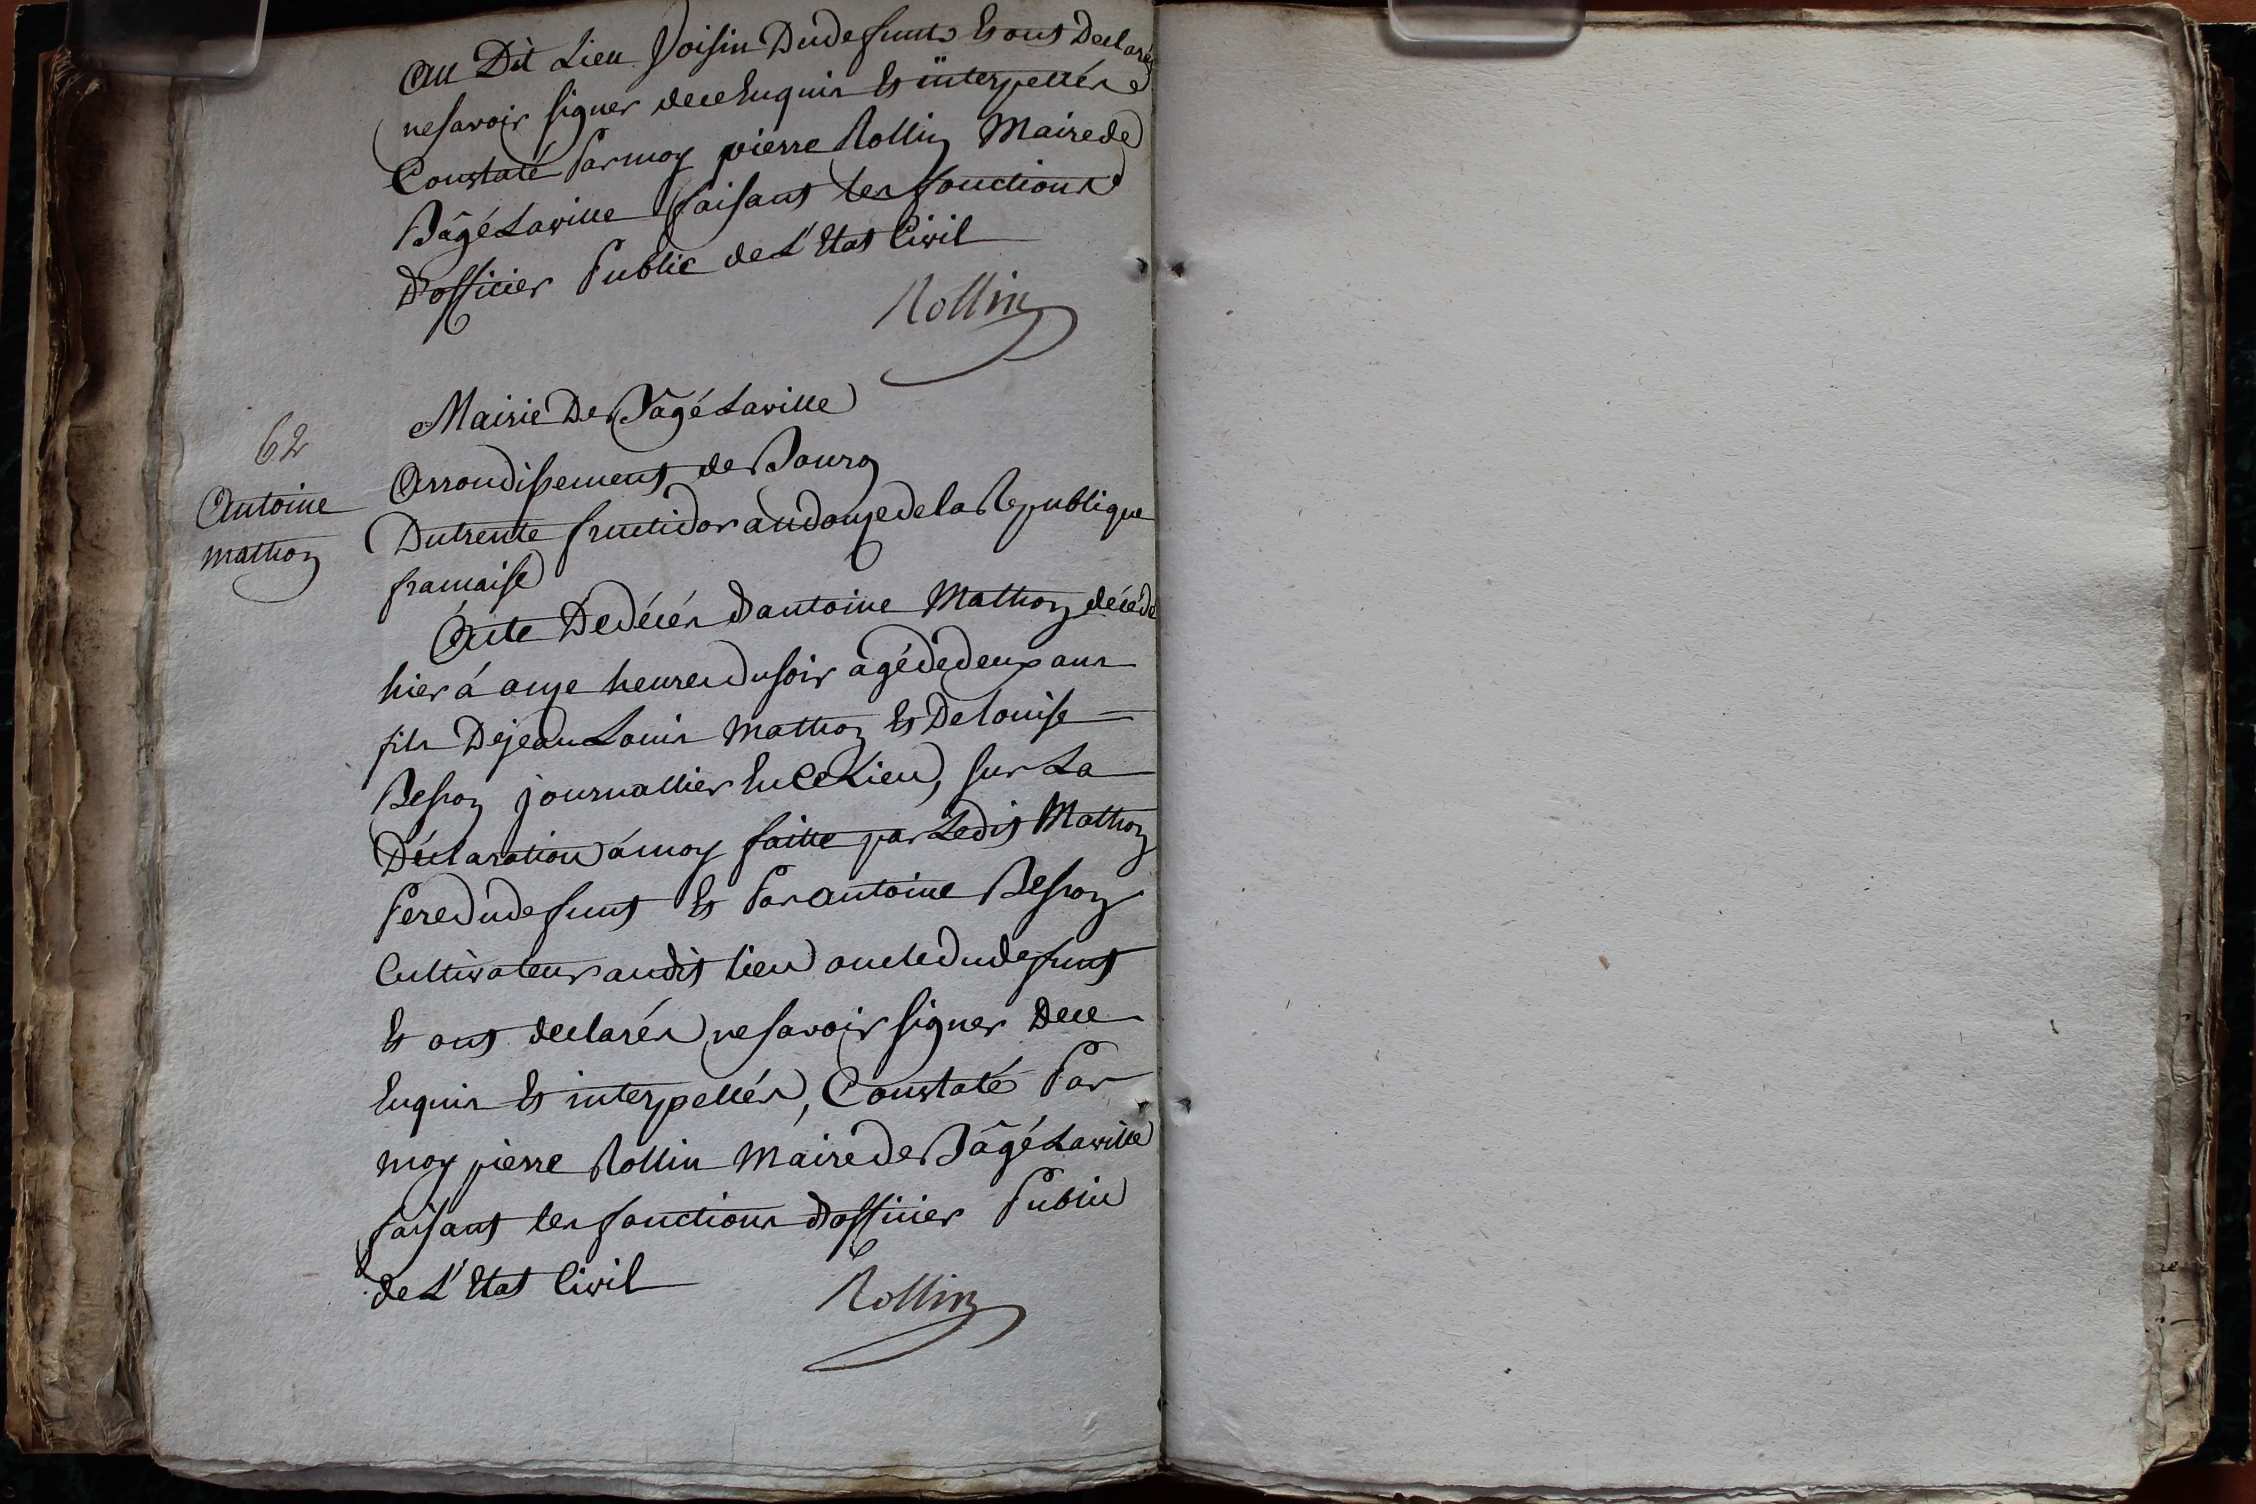 au Dit Lieu Voisin Dudefunt Et ont Declarés
ne savoir signer de ce Enquis Et interpellés
Constaté Par moy pierre Rollin Maire de
Bâgé Laville faisant les fonctions
D'officier Public de L'Etat Civil
Rollin
Mairie De Bâgé Laville
62
Antoine
mathon
Arrondissement de Bourg
Du trente fructidor an douze de la Republique
francaise
Acte De décès d'antoine Mathon décédé
hier á onze heures Du soir âgé de deux ans
fils De jean Louis Mathon Et De louise
Besson journallier En Ce Lieu, sur La
Déclaration á moy faitte par Ledit Mathon
Pere du defunt Et Par antoine Besson
Cultivateur audit lieu oncle du defunt
Et ont declarés ne savoir signer De ce
Enquis Et interpellés, Constaté Par
moy pierre Rollin Maire de Bâgé Laville
faisant les fonctions d'officier Public
de L'Etat Civil
Rollin